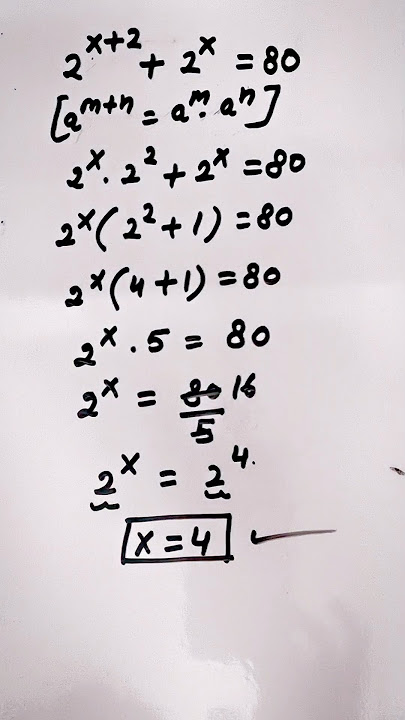 2^(x+2) + 2^x = 80
[a^(m+n) = a^m · a^n]
2^x · 2^2 + 2^x = 80
2^x (2^2 + 1) = 80
2^x (4 + 1) = 80
2^x · 5 = 80
2^x = 80/5 16
2^x = 2^4.
x = 4